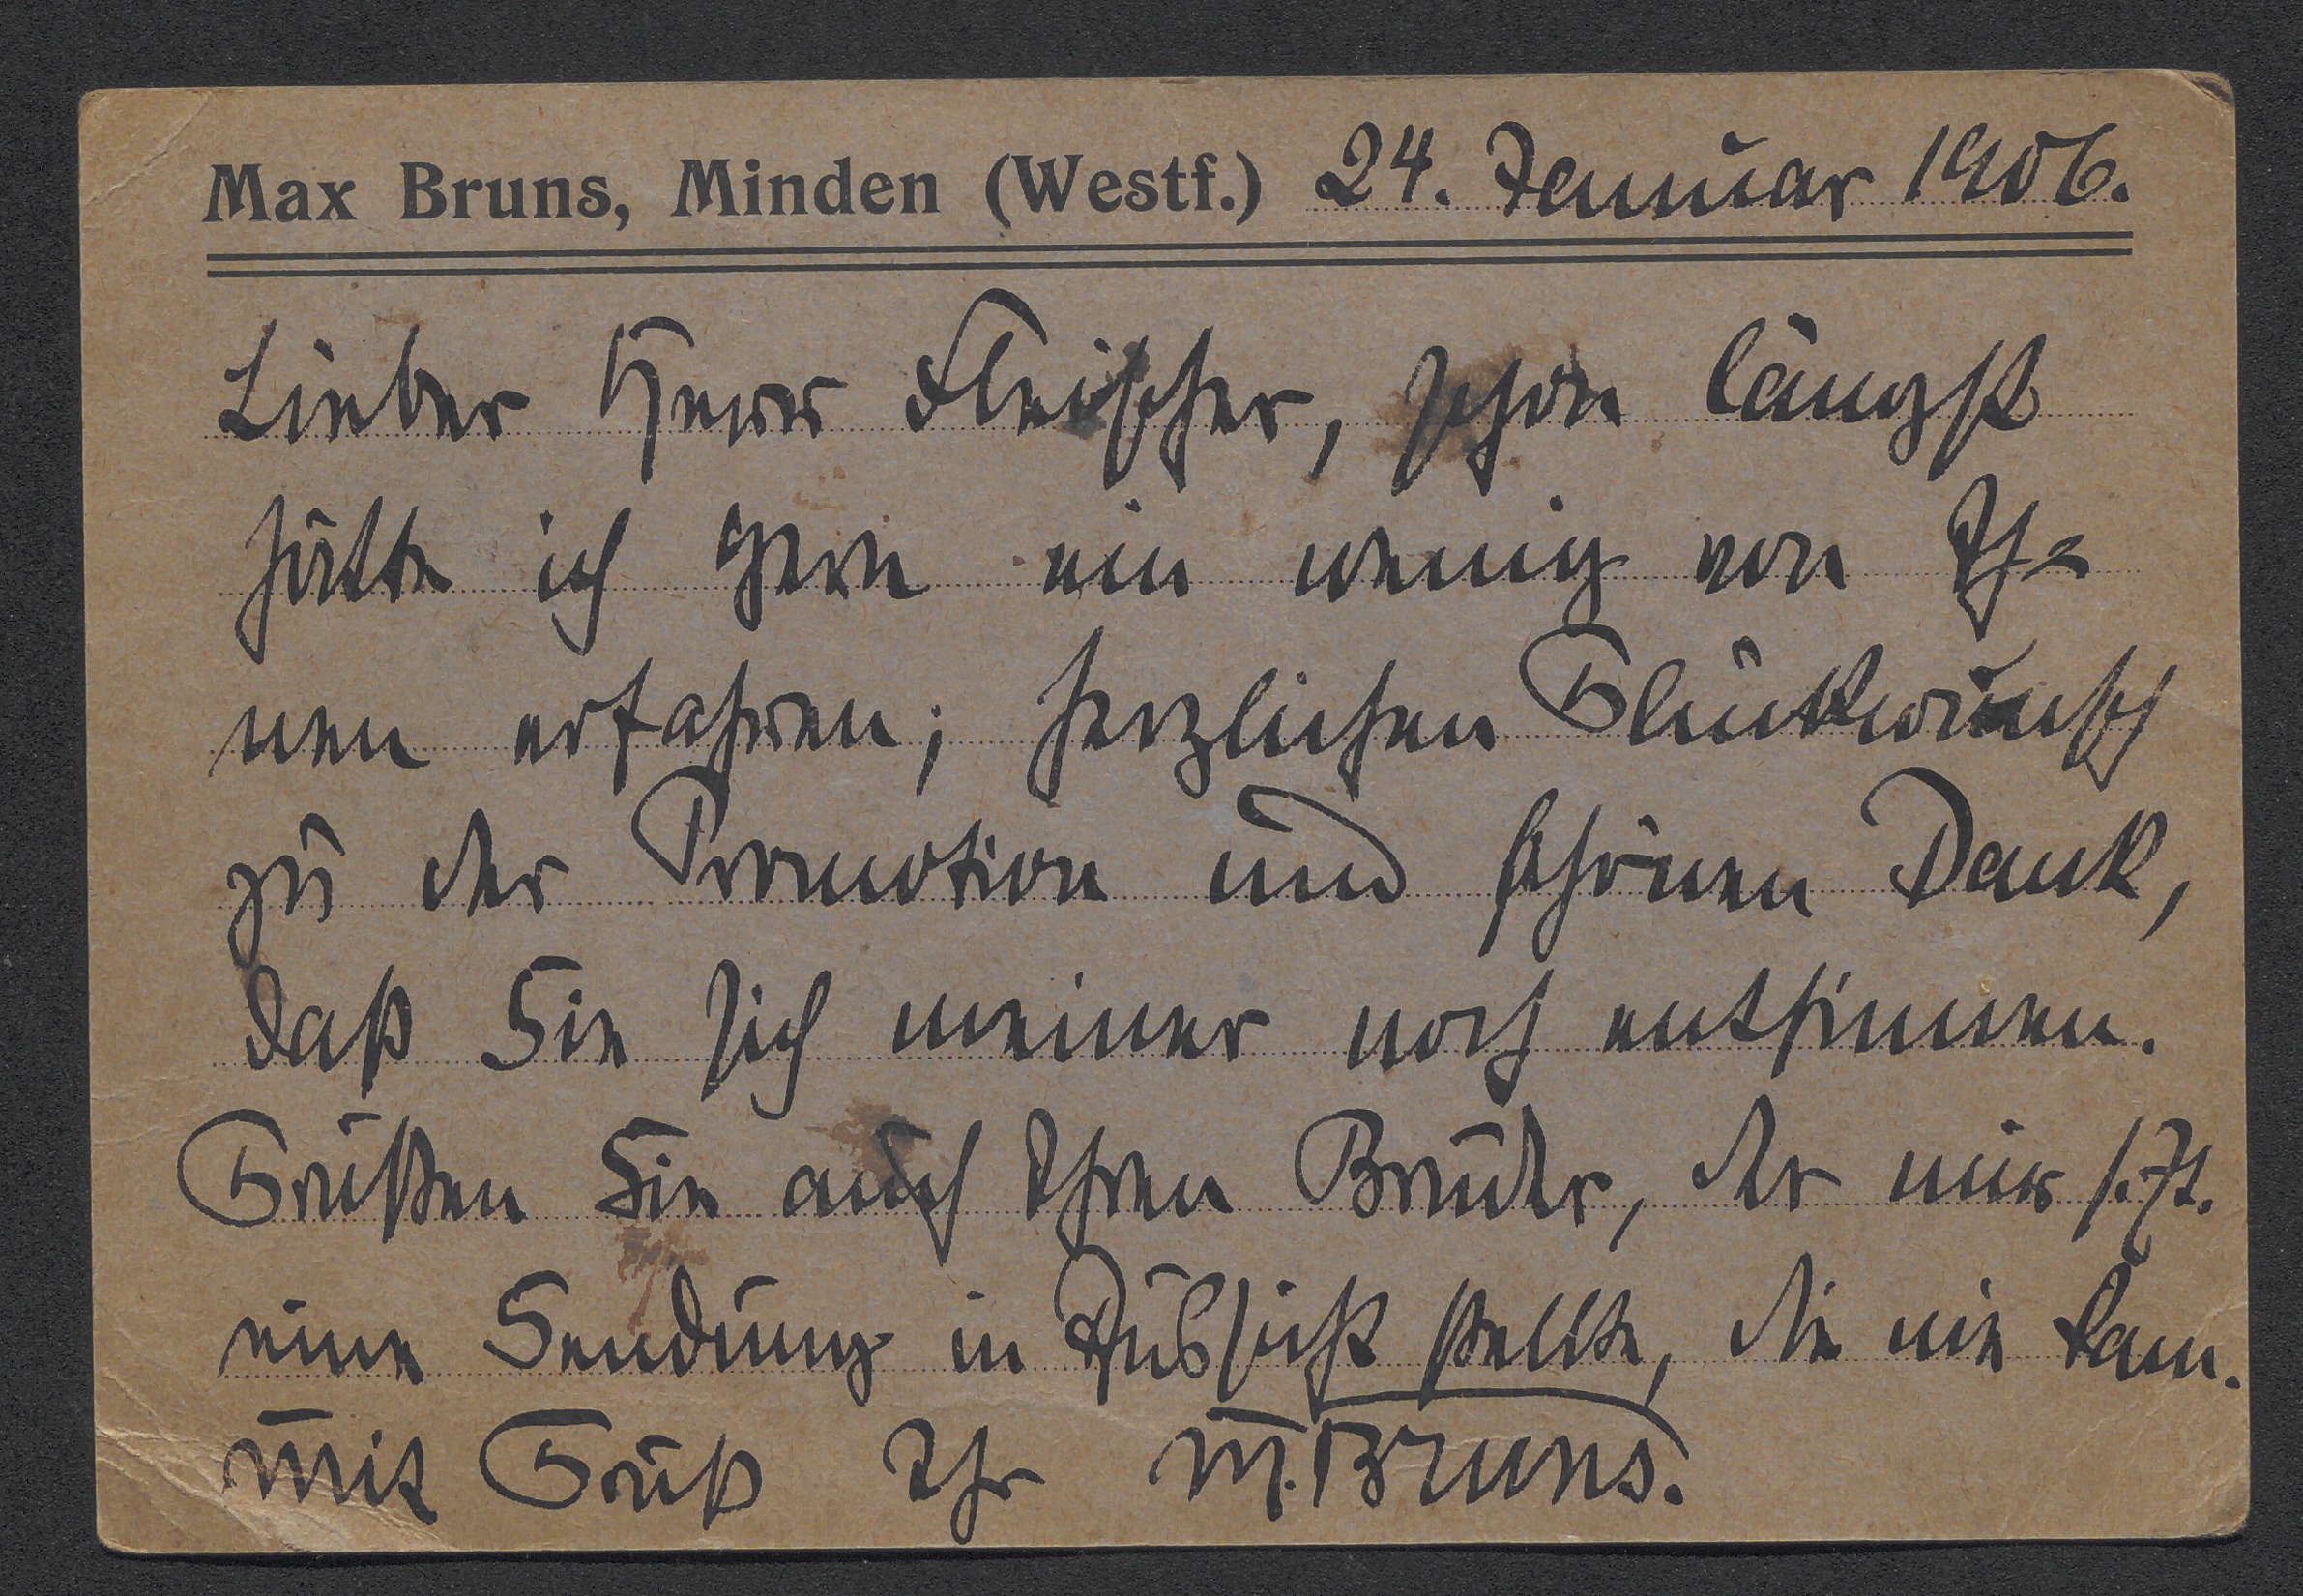 Max Bruns, Minden (Westf.) 24. Januar 1906.
Lieber Herr Fleischer, schon längst
hätte ich gern ein wenig von Ih=
nen erfahren; herzlichen Glückwunsch
zu der Promotion und schönen Dank,
daß Sie sich meiner noch entsinnen.
Grüßen Sie auch Ihren Bruder, der mir s. Zt.
eine Sendung in Aussicht stellte, die nie kam.
Mit Gruß Ihr M. Bruns.